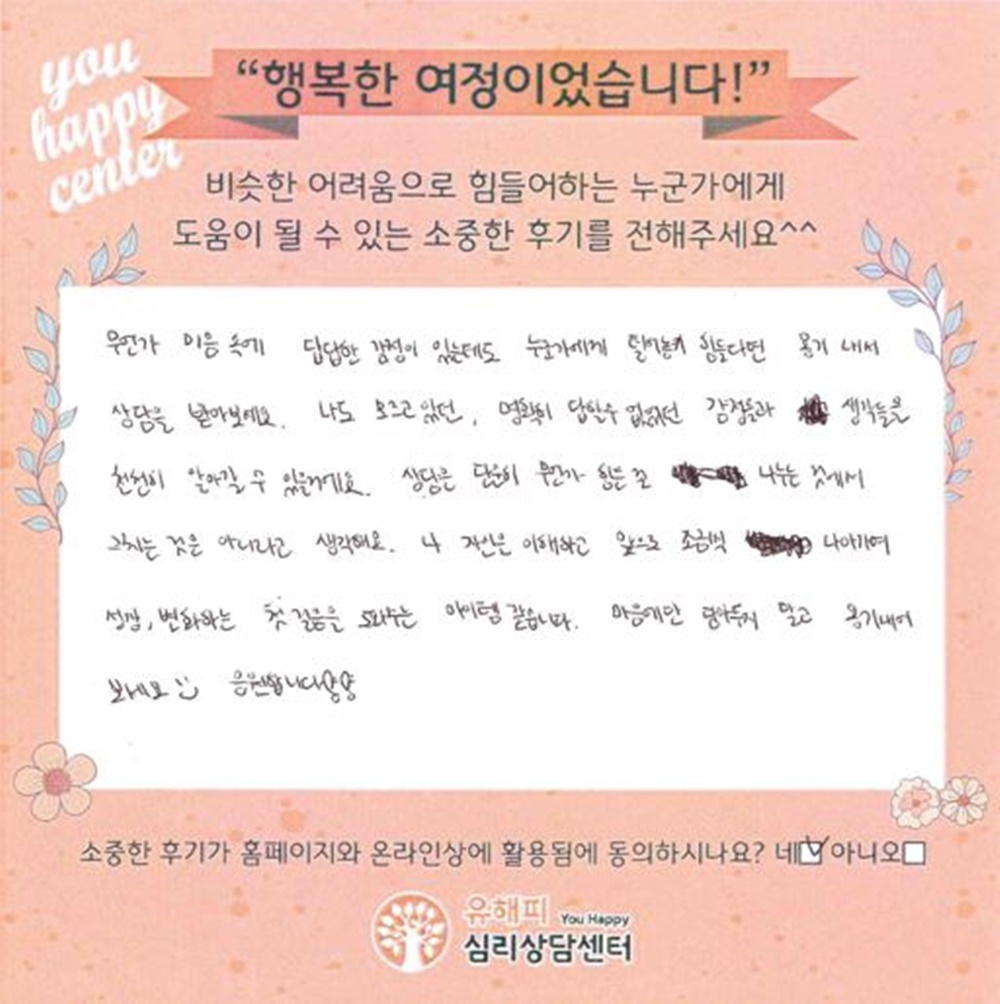 you
happy
center
“행복한 여정이었습니다!”
비슷한 어려움으로 힘들어하는 누군가에게
도움이 될 수 있는 소중한 후기를 전해주세요^^
무언가 마음 속에 답답한 감정이 있는데도 누군가에게 털어놓기 힘들다면 용기 내서
상담을 받아보세요. 나도 모르고 있던, 명확히 답할 수 없었던 감정들과 생각들을
천천히 알아갈 수 있을거에요. 상담은 단순히 무언가 힘든 것 나누는 것에서
그치는 것은 아니라고 생각해요. 나 자신을 이해하고 앞으로 조금씩 나아가며
성장, 변화하는 첫 걸음을 도와주는 아이템 같습니다. 마음에만 담아두지 말고 용기내어
보세요 응원합니다
소중한 후기가 홈페이지와 온라인상에 활용됨에 동의하시나요? 네 아니오
유해피 You Happy
심리상담센터